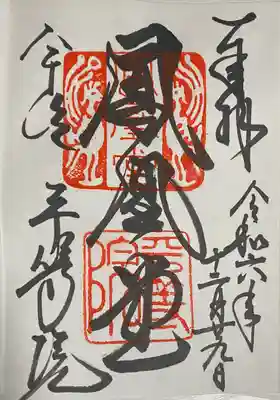 奉拝
令和六年
十二月廿九日
鳳凰堂
宇治
平等院